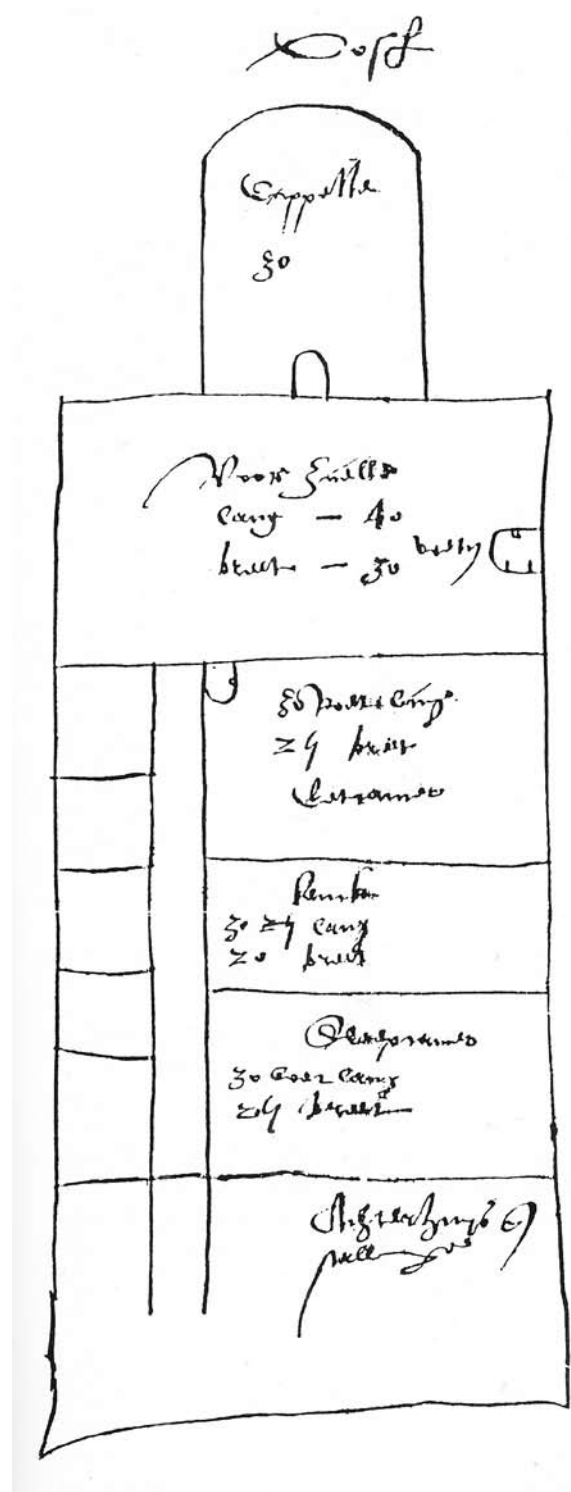 Oost
Cappelle
30
Voor Zaelle
lang — 40
breet — 30
30 voet lang
24 breet
Eetcamer
30 24 lang
20 breet
Slaepcamer
30 voet lang
24 breet
Achterhuys